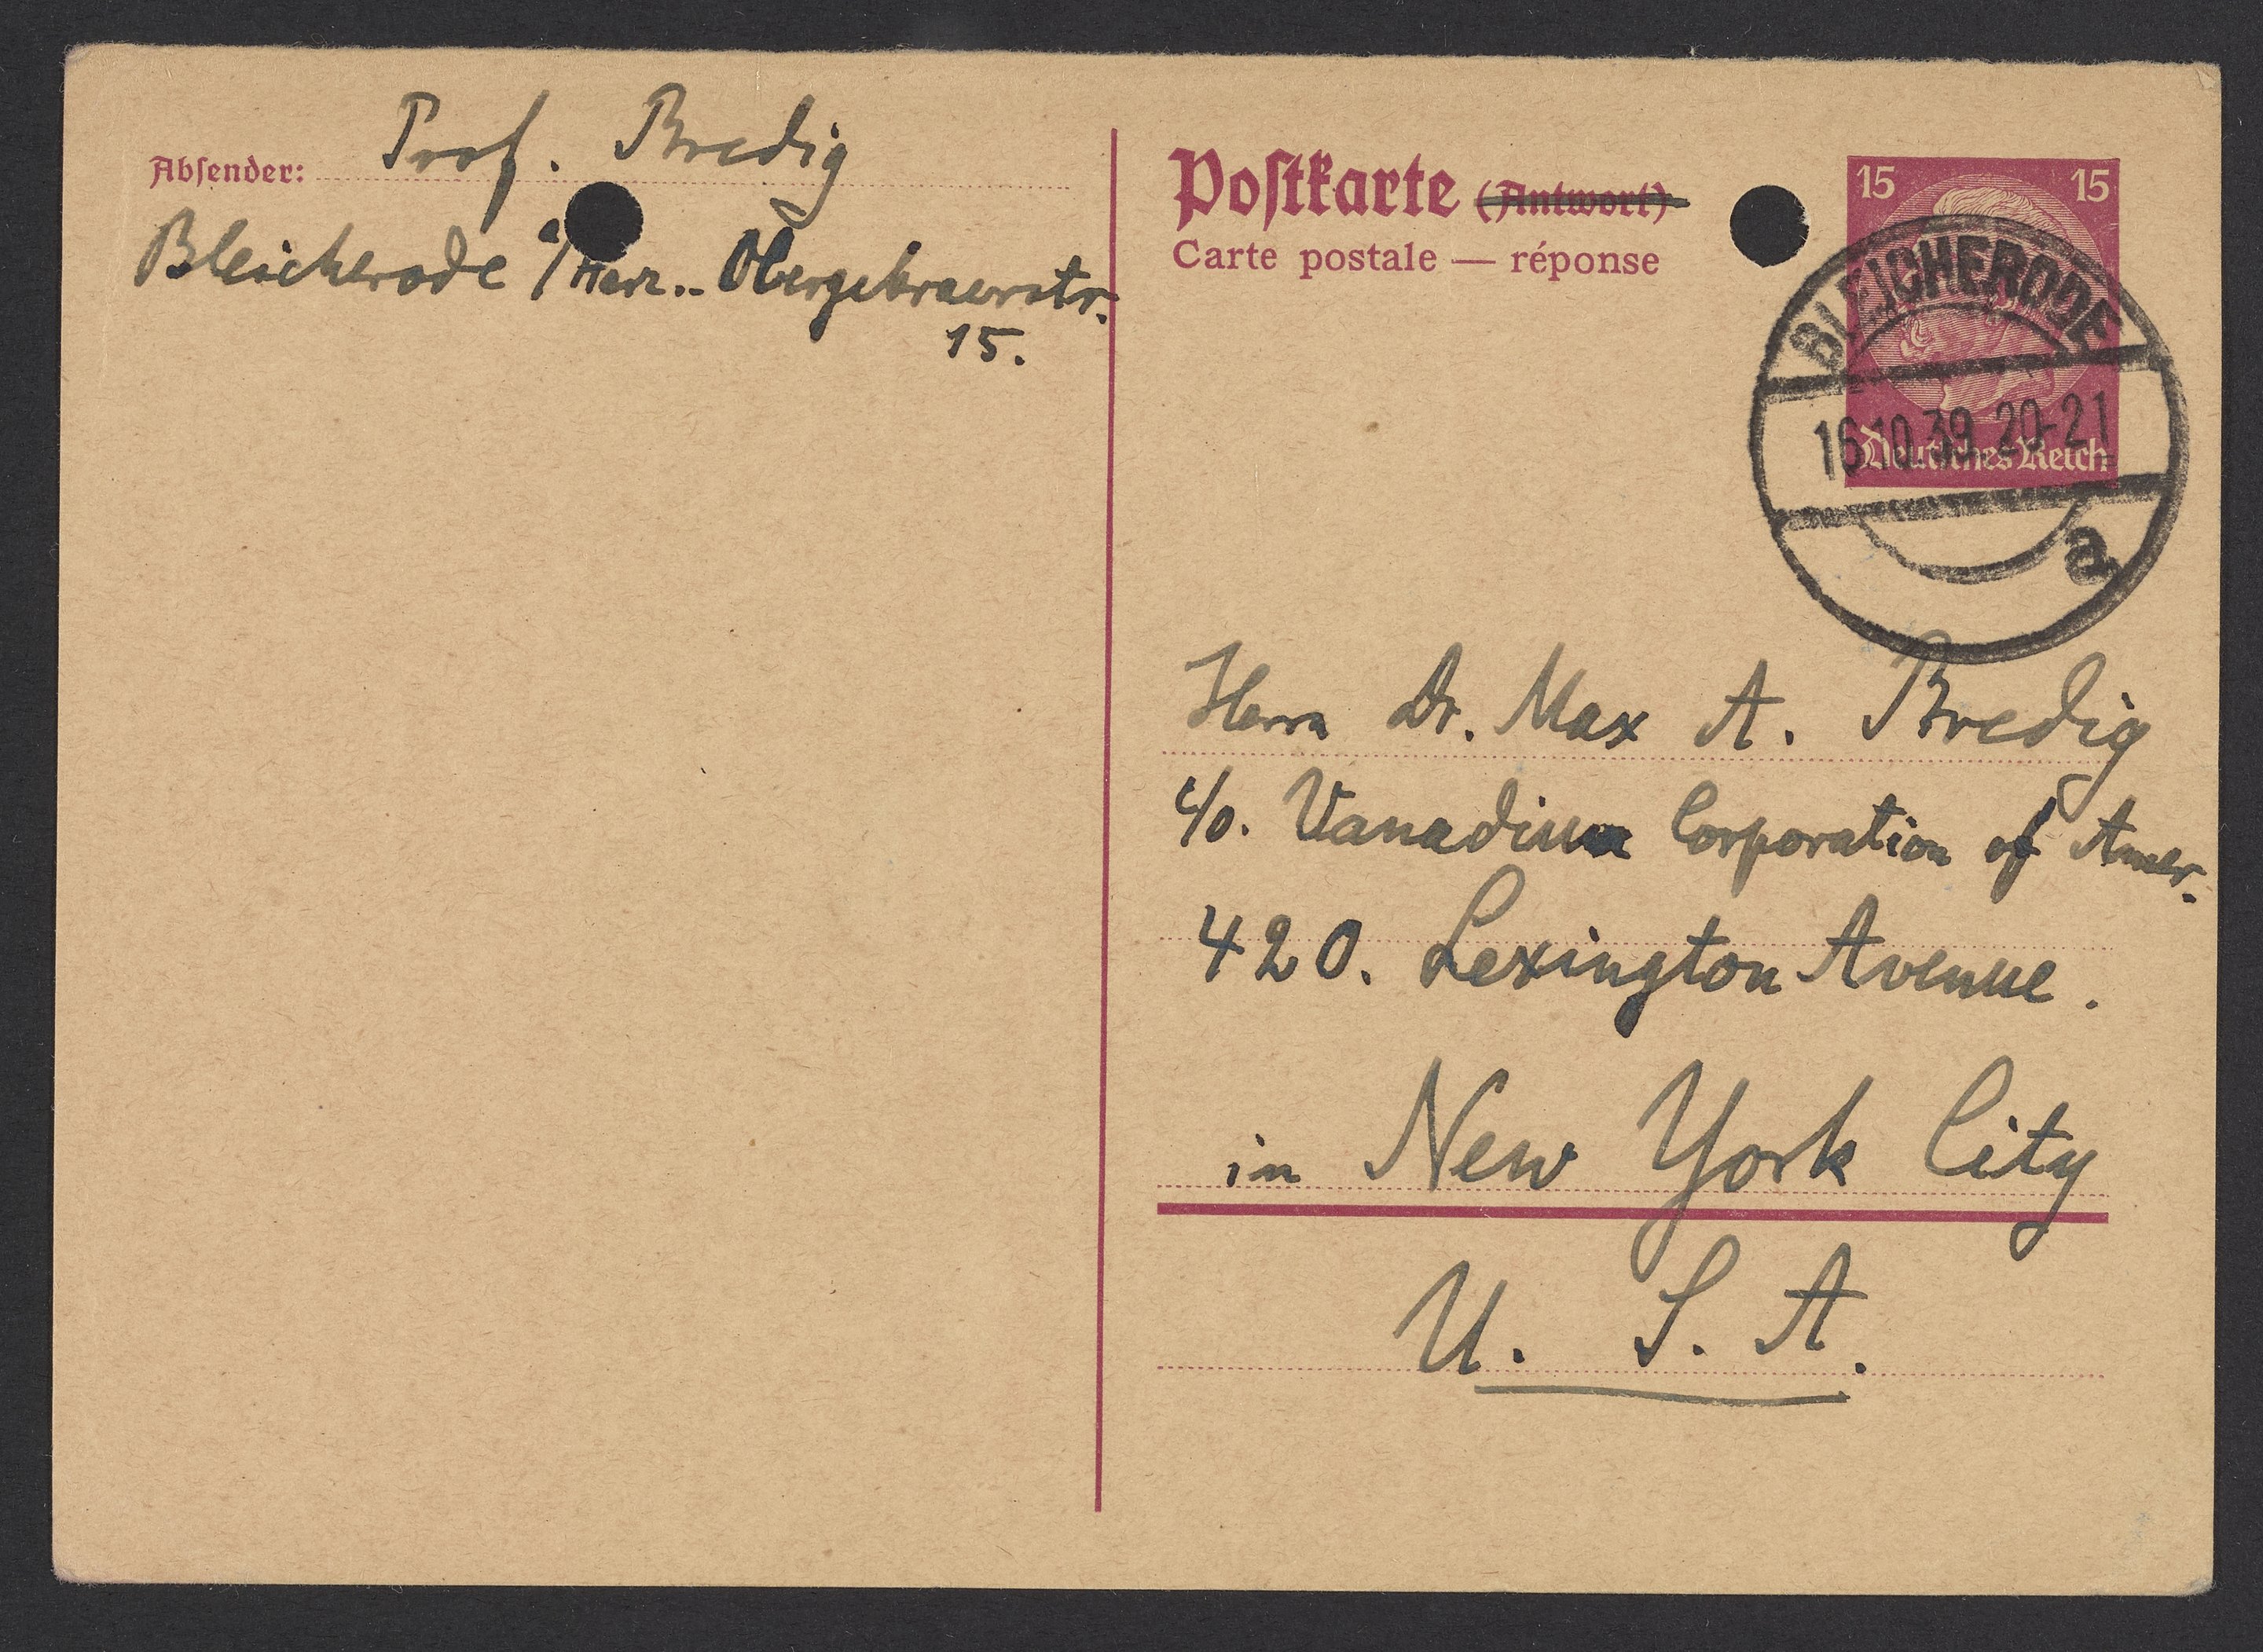 Absender: Prof. Bredig
Bleicherode a/Harz.. Obergebraerstr.
15.
Postkarte (Antwort)
Carte postale — réponse
15 15
Deutsches Reich
BLEICHERODE
16.10.39. 20-21
a
Herrn Dr. Max A. Bredig
c/o. Vanadium Corporation of Amer.
420. Lexington Avenue.
in New York City
U. S. A.